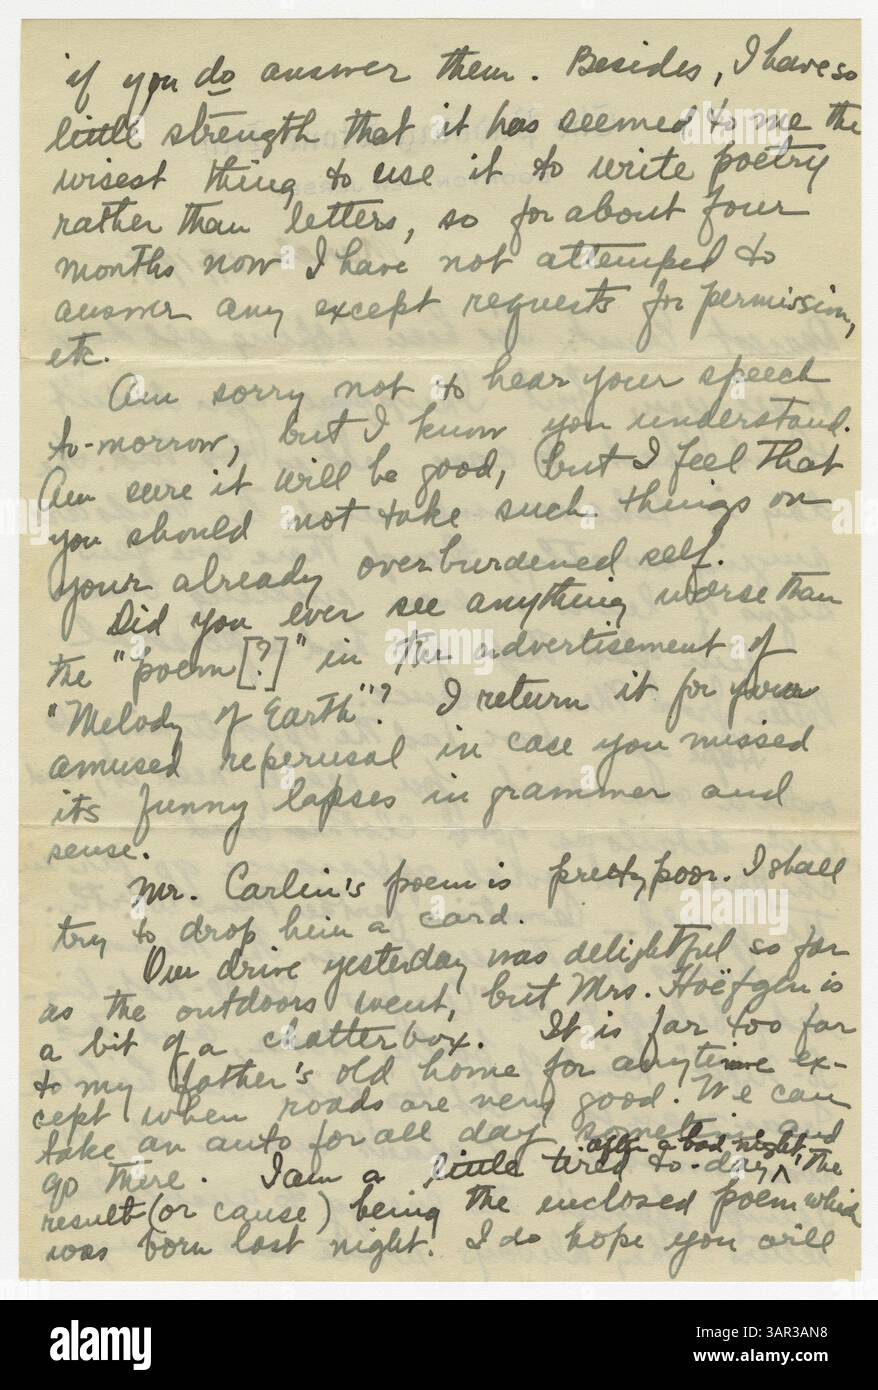 if you do answer them. Besides, I have so
little strength that it has seemed to me the
wisest thing to use it to write poetry
rather than letters, so for about four
months now I have not attempted to
answer any except requests for permission,
etc.
Am sorry not to hear your speech
to-morrow, but I know you understand.
Am sure it will be good, but I feel that
you should not take such things on
your already overburdened self.
Did you ever see anything worse than
the "poem [?]" in the advertisement of
"Melody of Earth"? I return it for your
amused reperusal in case you missed
its funny lapses in grammer and
sense.
Mr. Carlin's poem is pretty poor. I shall
try to drop him a card.
Our drive yesterday was delightful so far
as the outdoors went, but Mrs. Hoëfgen is
a bit of a chatterbox. It is far too far
to my father's old home for anytime ex-
cept when roads are very good. We can
take an auto for all day sometime and
go there. I am a little tired to-day after a bad night, the
result (or cause) being the enclosed poem which
was born last night. I do hope you will
alamy
Image ID: 3AR3AN8
www.alamy.com